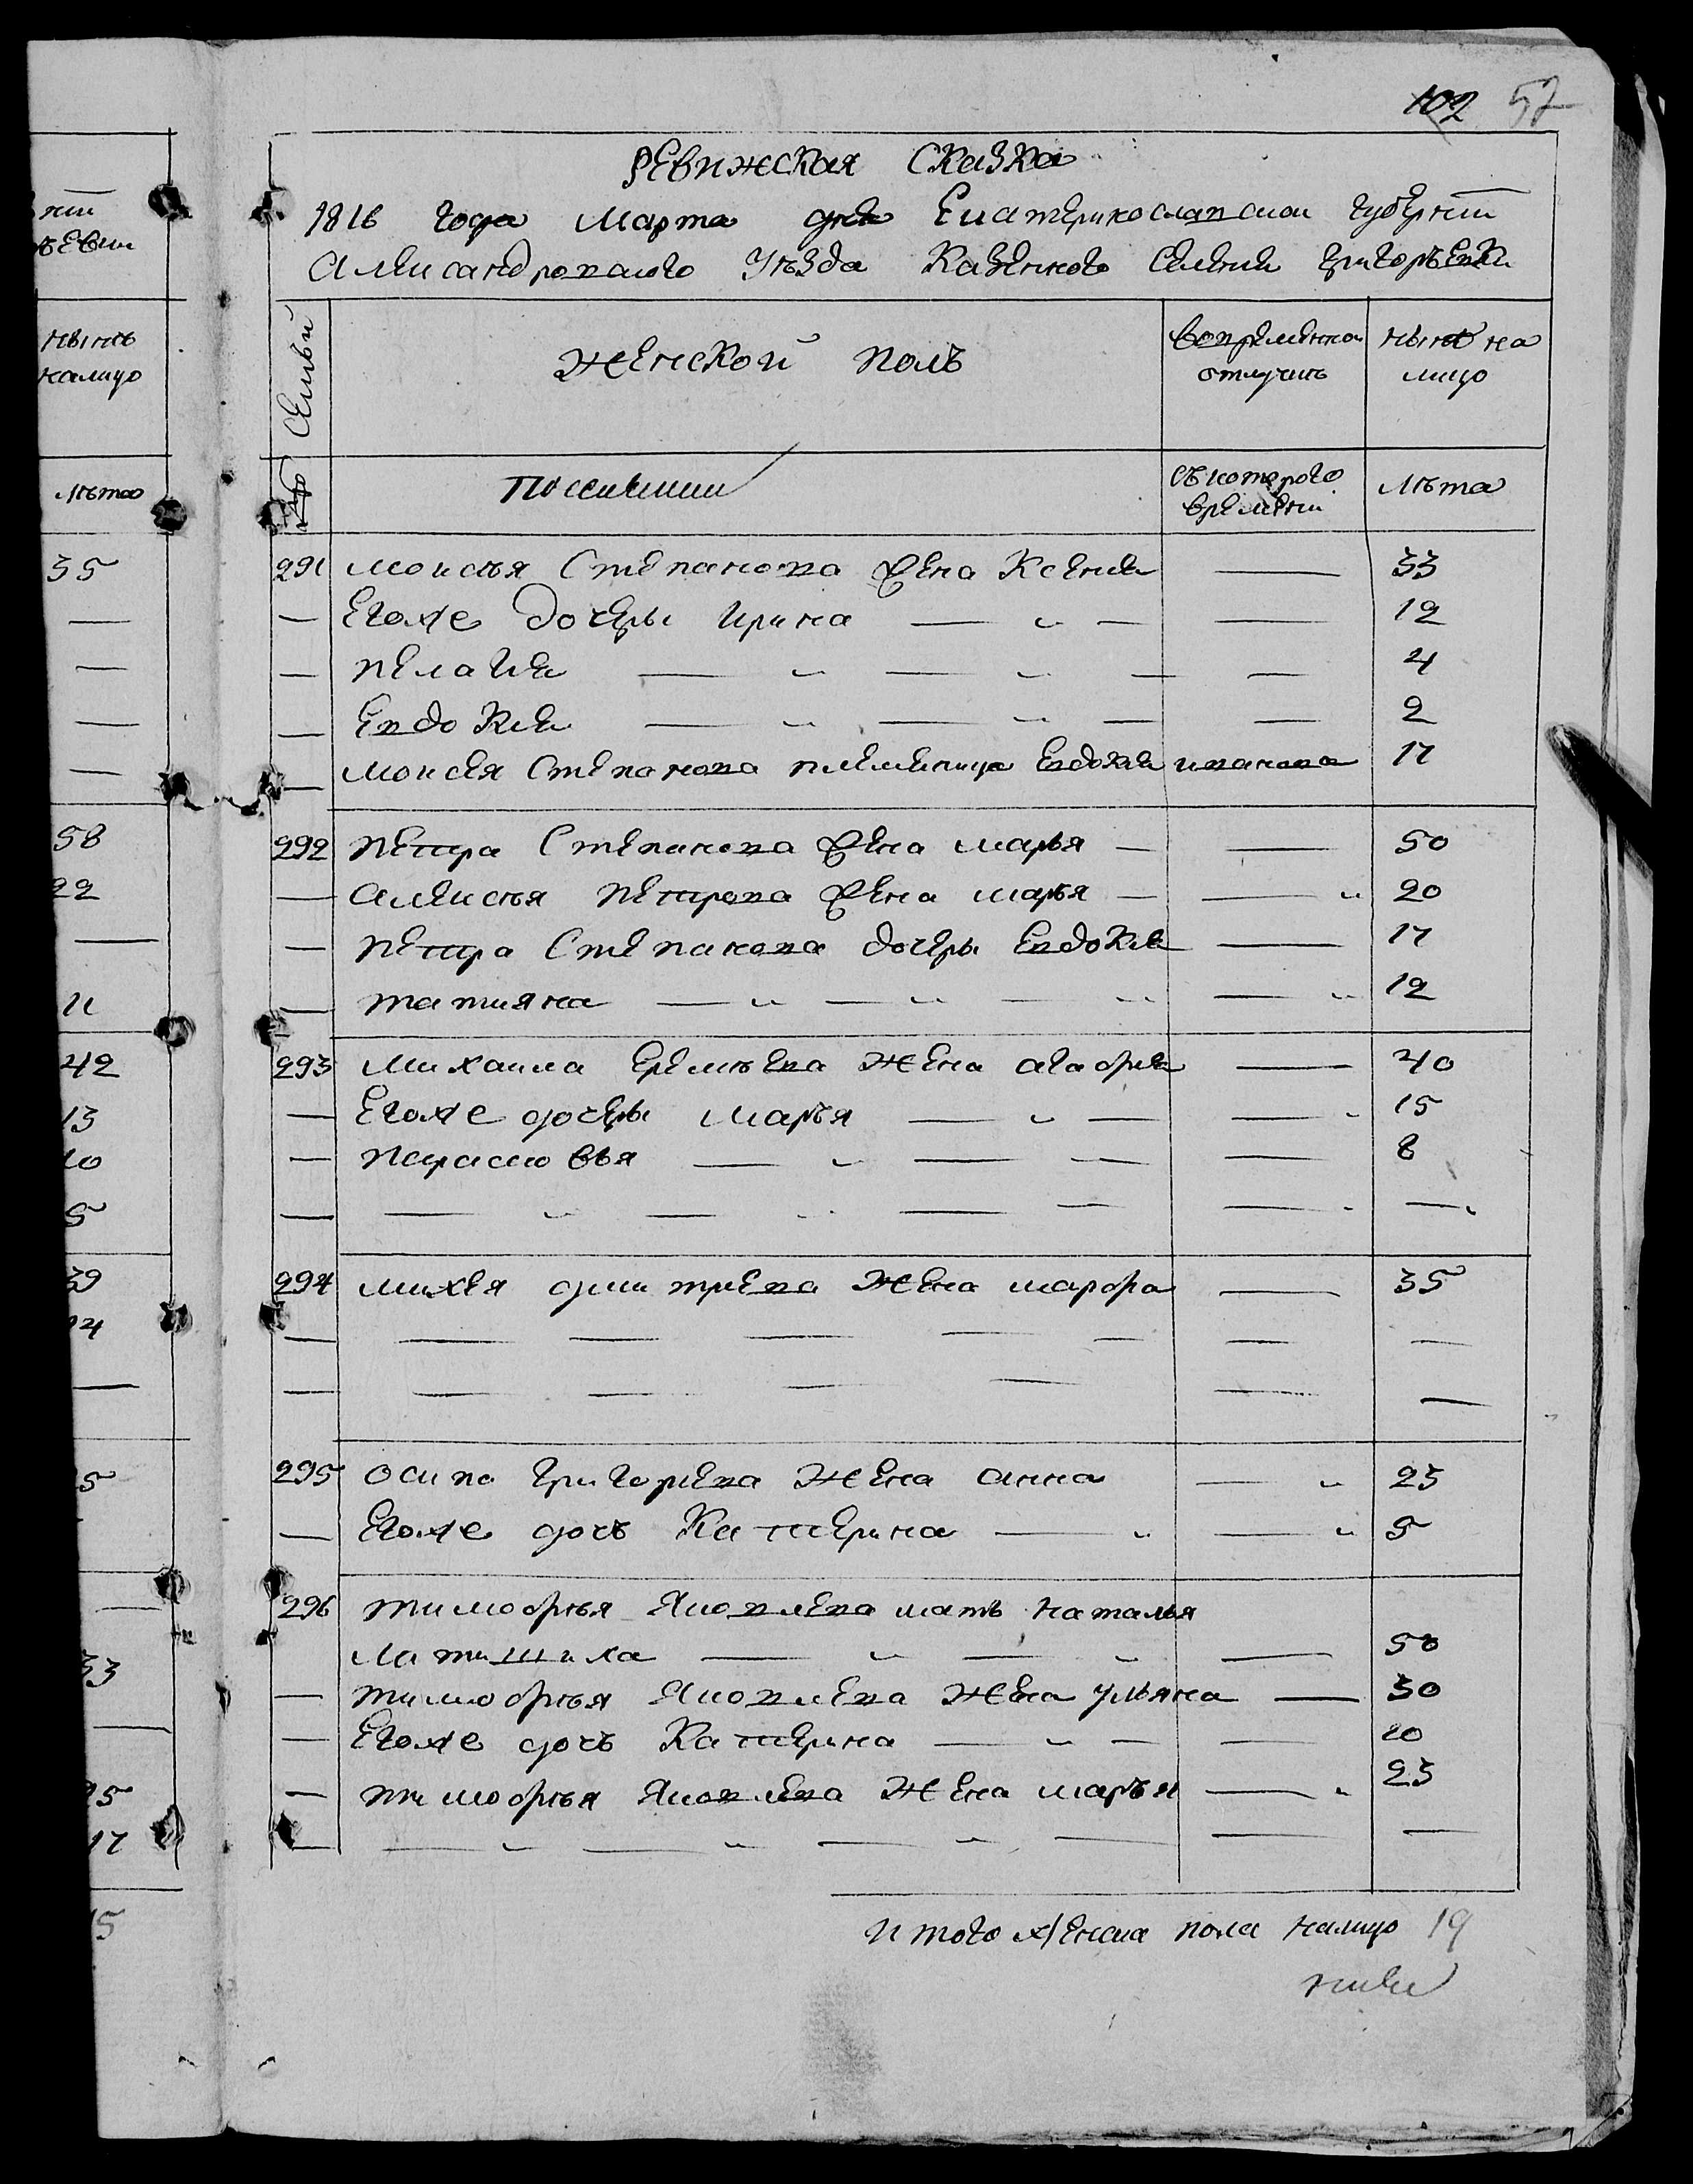 102 57
Ревижская Сказка
1816 года Марта дня Екатеринославской губернии
Александровского Уѣзда Казенного Селения Григорьевки
нынѣ
налицо
лѣта
Семьи
Женской полъ
вовременной отлучкѣ
нынѣ на лицо
№
Поселянки
съкоторого времени
лѣта
35
291 Моисѣя Степанова жена Ксения — 33
— Егоже дочеры Ирина — 12
— Пелагия — 4
— Евдокия — 2
— Моисея Степанова племеница Евдокия иванова 17
58
22
11
292 Петра Степанова жена марья — 50
— Алексѣя Петрова жена марья — 20
— Петра Степанова дочеры Евдокия — 17
— татияна — 12
42
13
10
5
293 Михаила Еремѣева жена агафия — 40
— Егоже дочеры Марья — 15
— Парасковья — 8
39
14
294 михея дмитриева жена марфа — 35
5
295 осипа Григориева жена анна — 23
— Егоже дочъ Катерина — 5
33
25
17
15
296 тимофѣя Яковлева мать наталья
Латишиха — 50
— тимофѣя Яковлева жена ульяна — 30
— Егоже дочъ Катерина — 10
— тимофѣя Яковлева жена марья — 23
Итого женска пола налицо 19